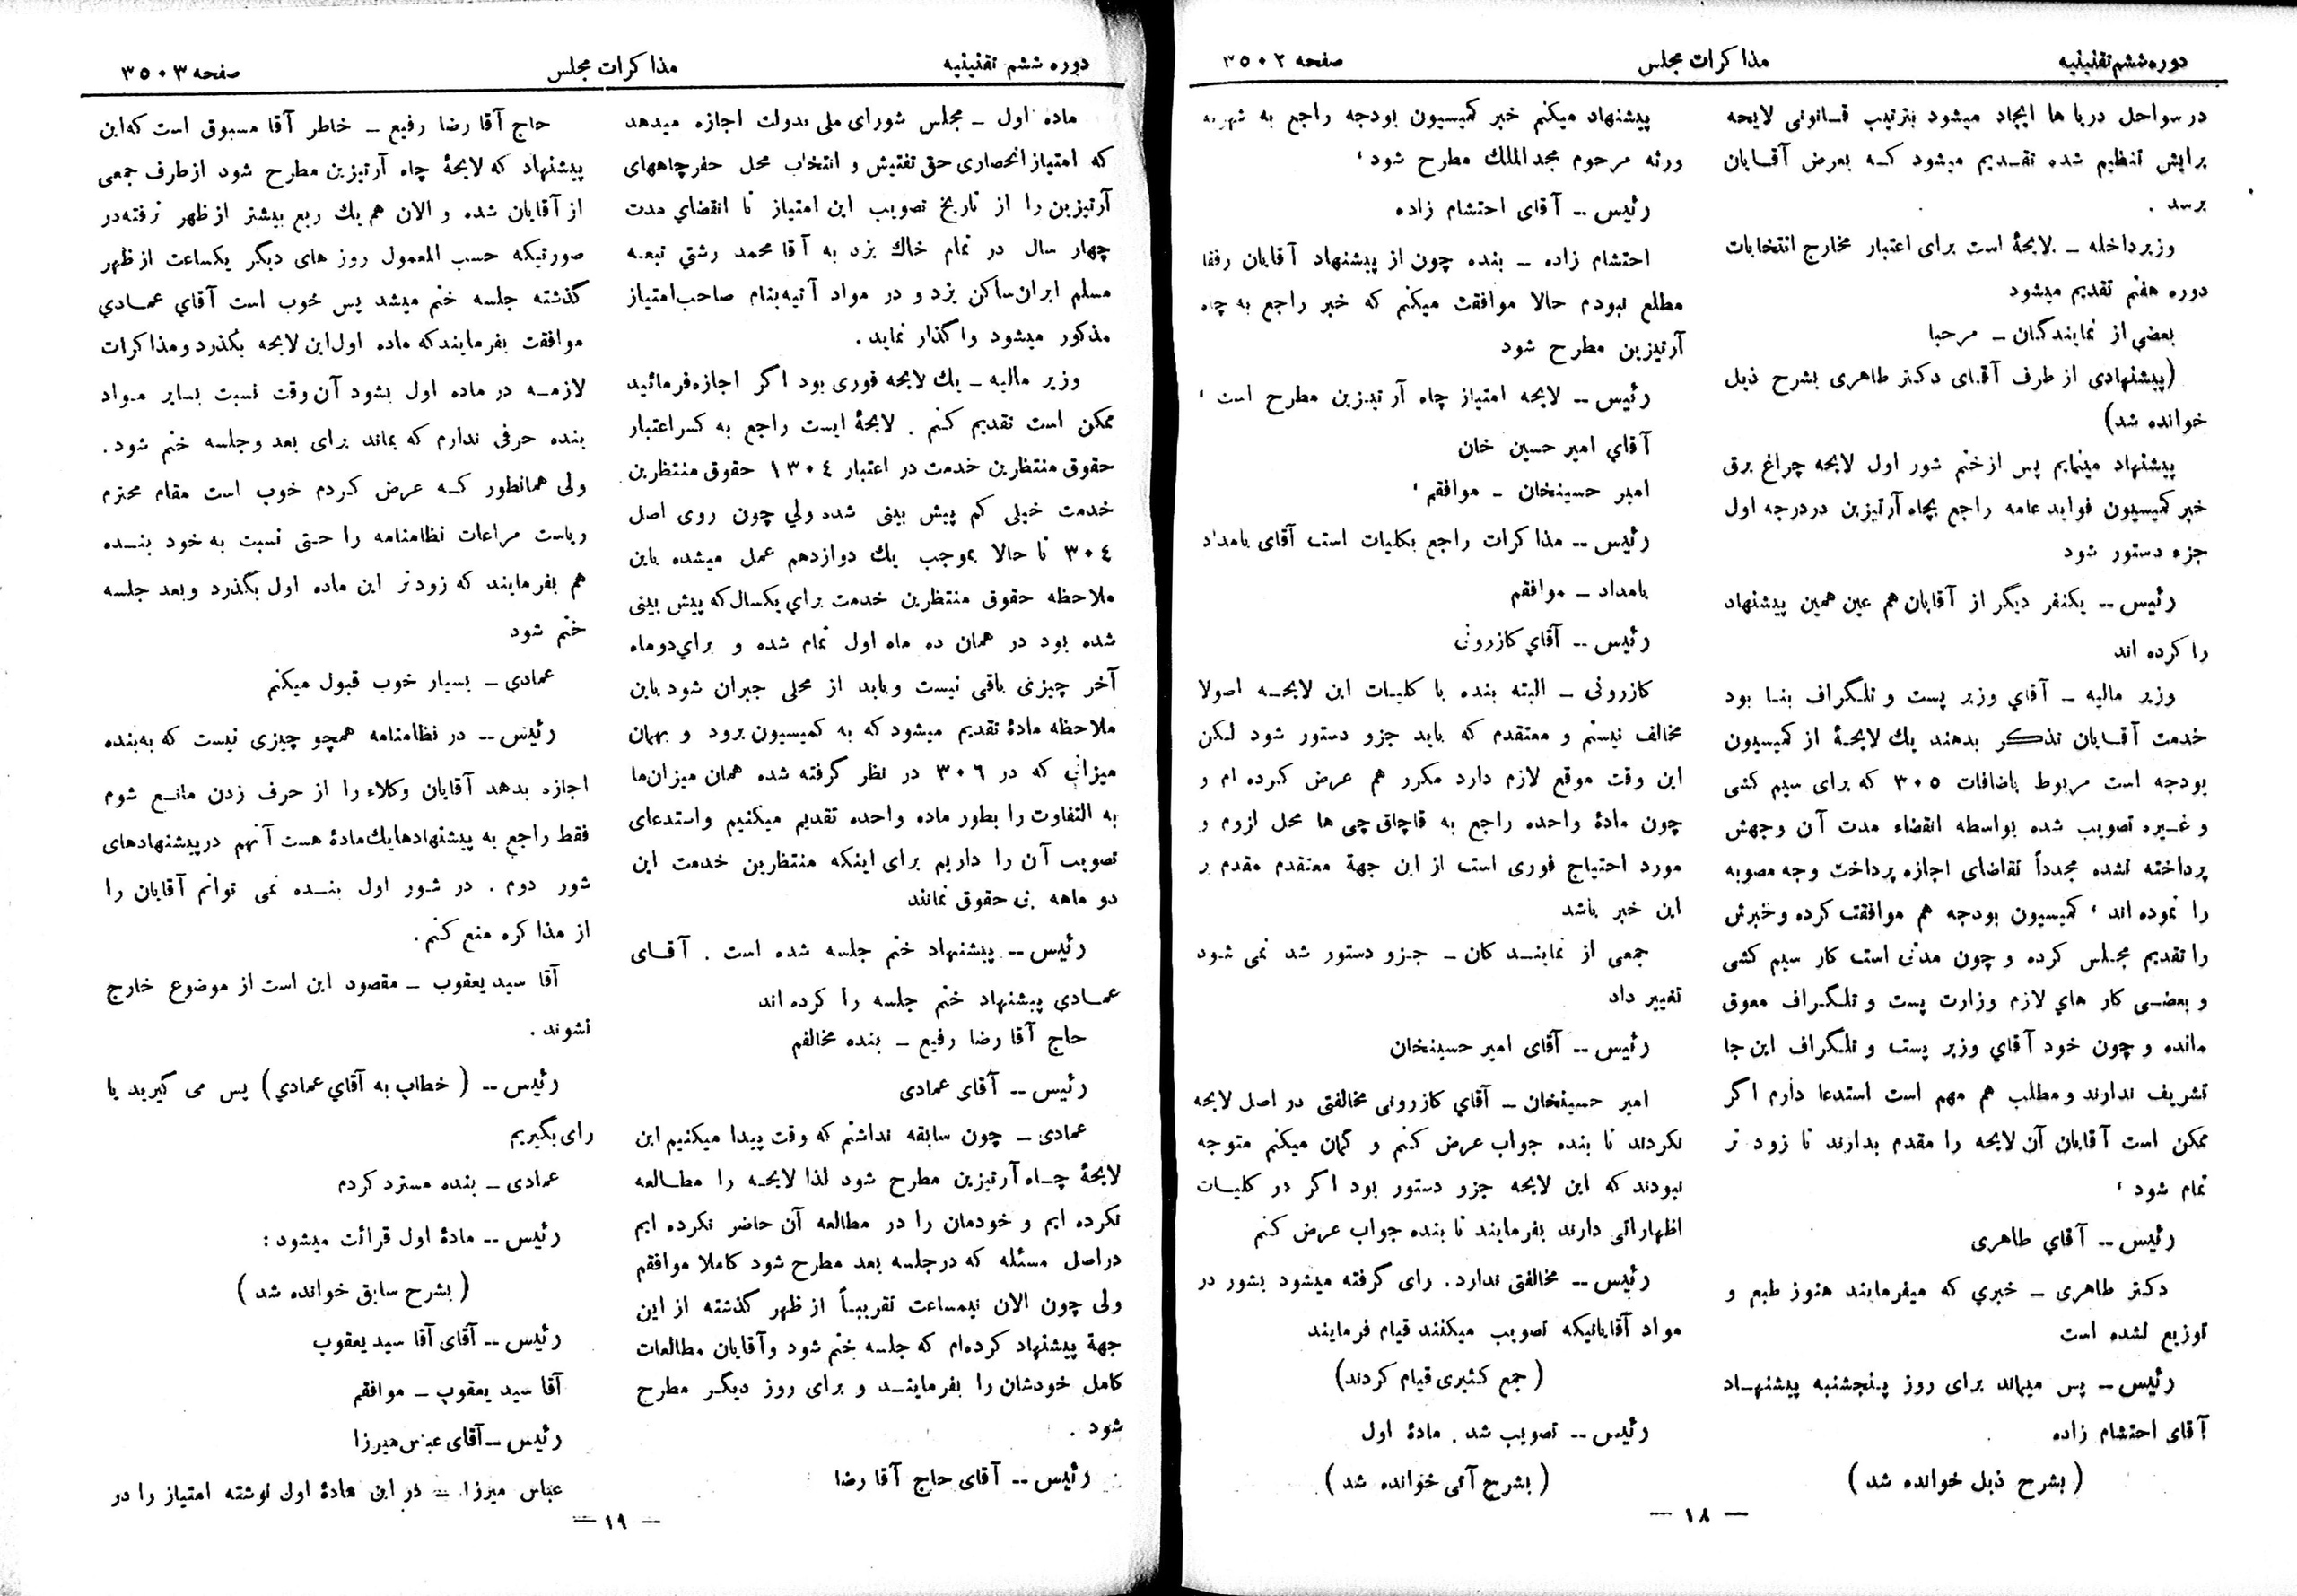 دوره ششم تقنینیه
مذاکرات مجلس
صفحه ۳۵۰۲
در سواحل دریا ها ایجاد میشود بترتیب قـانونی لایحه
برایش تنظیم شده تقـدیم میشود کـه بعرض آقـایان
برسد .
وزیرداخله ـ لایحهٔ است برای اعتبار مخارج انتخابات
دوره هفتم تقدیم میشود
بعضي از نمایندگان ـ مرحبا
(پیشنهادي از طرف آقای دکتر طاهری بشرح ذیل
خوانده شد)
پیشنهاد مینمایم پس ازختم شور اول لایحه چراغ برق
خبر کمیسیون فواید عامه راجع بچاه آرتیزین دردرجه اول
جزء دستور شود
رئیس -- یکنفر دیگر از آقایان هم عین همین پیشنهاد
را کرده اند
وزیر مالیه ـ آقاي وزیر پست و تلگراف بنـا بود
خدمت آقـایان تذکـر بدهند یك لایحـهٔ از کمیسیون
بودجه است مربوط باضافات ۳۰۵ که برای سیم کشی
و غـیره تصویب شده بواسطه انقضاء مدت آن وجهش
پرداخته نشده مجدداً تقاضای اجازه پرداخت وجه مصوبه
را نموده اند ، کمیسیون بودجه هم موافقت کرده وخبرش
را تقدیم مجـلس کرده و چون مدتی است کار سیم کشی
و بعضـی کار هاي لازم وزارت پست و تلـگراف معوق
مانده و چون خود آقاي وزیر پست و تلـگراف این جا
تشریف ندارند و مطلب هم مهم است استدعا دارم اگر
ممکن است آقایان آن لایحه را مقدم بدارند تا زود تر
تمام شود ،
رئیس -- آقاي طاهری
دکتر طاهری ـ خبري که میفرمایند هنوز طبع و
توزیع نشده است
رئیس ـ پس میماند برای روز پنجشنبه پیشنهـاد
آقای احتشام زاده
( بشرح ذیل خوانده شد )
پیشنهاد میکنم خبر کمیسیون بودجه راجع به شهریه
ورثه مرحوم مجدالملك مطرح شود ،
رئیس -- آقای احتشام زاده
احتشام زاده ـ بنده چون از پیشنهاد آقایان رفقا
مطلع نبودم حالا موافقت میکنم که خبر راجع به چاه
آرتیزین مطرح شود
رئیس -- لایحه امتیاز چاه آرتیزین مطرح است ،
آقاي امیر حسین خان
امیر حسینخان ـ موافقم ،
رئیس -- مذاکرات راجع بکلیات است آقای بامداد
بامداد ـ موافقم
رئیس -- آقاي کازرونی
کازرونی ـ البته بنده با کلیـات این لایحـه اصولا
مخالف نیستم و معتقدم که باید جزو دستور شود لـکن
این وقت موقع لازم دارد مکرر هم عرض کرده ام و
چون مادهٔ واحده راجع به قاچاق چی ها محل لزوم و
مورد احتیاج فوری است از این جهة معتقدم مقدم بر
این خبر باشد
جمعی از نماینـد کان ـ جـزو دستور شد نمی شود
تغییر داد
رئیس -- آقای امیر حسینخان
امیر حسینخان ـ آقاي کازرونی مخالفتی در اصل لایحه
نکردند تا بنده جواب عرض کنم و گمان میکنم متوجه
نبودند که این لایحه جزو دستور بود اگر در کلیـات
اظهاراتی دارند بفرمایند تا بنده جواب عرض کنم
رئیس -- مخالفتی ندارد. رای گرفته میشود بشور در
مواد آقایانیکه تصویب میکنند قیام فرمایند
( جمع کثیری قیام کردند)
رئیس -- تصویب شد . مادهٔ اول
( بشرح آتی خوانده شد )
— ۱۸ —
دوره ششم تقنینیه
مذاکرات مجلس
صفحه ۳۵۰۳
ماده اول ـ مجلس شورای ملی بدولت اجازه میدهد
که امتیاز انحصاری حق تفتیش و انتخاب محل حفر چاههای
آرتیزین را از تاریخ تصویب این امتیاز تا انقضاي مدت
چهار سال در تمام خاك یزد به آقا محمد رشتي تبعـه
مسلم ایران‌ساکن یزد و در مواد آتیه بنام صاحب امتیاز
مذکور میشود واگذار نماید .
وزیر مالیه ـ یك لایحه فوری بود اگر اجازه فرمائید
ممکن است تقدیم کنم . لایحهٔ ایست راجع به کسراعتبار
حقوق منتظرین خدمت در اعتبار ۱۳۰٤ حقوق منتظرین
خدمت خیلی کم پیش بینی شده ولي چون روی اصل
۳۰٤ تا حالا بموجب یك دوازدهم عمل میشده باین
ملاحظه حقوق منتظرین خدمت براي یکسال که پیش بینی
شده بود در همان ده ماه اول تمام شده و براي دوماه
آخر چیزی باقی نیست و باید از محلی جبران شود باین
ملاحظه مادهٔ تقدیم میشود که به کمیسیون برود و بهمان
میزانی که در ۳۰٦ در نظر گرفته شده همان میزان ما
به التفاوت را بطور ماده واحده تقدیم میکنیم واستدعای
تصویب آن را داریم برای اینکه منتظرین خدمت این
دو ماهه بی حقوق نمانند
رئیس -- پیشنهاد ختم جلسه شده است . آقـای
عمـادي پیشنهاد ختم جلسه را کرده اند
حاج آقا رضا رفیع ـ بنده مخالفم
رئیس -- آقای عمادی
عمادی ـ چون سابقه نداشتم که وقت پیدا میکنیم این
لایحهٔ چـاه آرتیزین مطرح شود لذا لایحـه را مطـالعه
نکرده ایم و خودمان را در مطالعه آن حاضر نکرده ایم
دراصل مسئله که درجلسه بعد مطرح شود کاملا موافقم
ولی چون الان نیمساعت تقریبـاً از ظهر گذشته از این
جهة پیشنهاد کرده‌ام که جلسه ختم شود و آقایان مطالعات
کامل خودشان را بفرماینـد و برای روز دیگـر مطرح
شود .
رئیس -- آقای حاج آقا رضا
حاج آقا رضا رفیع ـ خاطر آقا مسبوق است که این
پیشنهاد که لایحهٔ چاه آرتیزین مطرح شود ازطرف جمعی
از آقایان شده و الان هم یك ربع بیشتر از ظهر نرفته در
صورتیکه حسب المعمول روز های دیگر یکساعت از ظهر
گذشته جلسه ختم میشد پس خوب است آقاي عمـادي
موافقت بفرمایند که ماده اول این لایحه بگذرد و مذاکرات
لازمـه در ماده اول بشود آن وقت نسبت بسایر مـواد
بنده حرفی ندارم که بماند برای بعد و جلسه ختم شود .
ولی همانطور کـه عرض کردم خوب است مقام محترم
ریاست مراعات نظامنامه را حتـی نسبت به خود بنـده
هم بفرمایند که زودتر این ماده اول بگذرد و بعد جلسه
ختم شود
عمادي ـ بسیار خوب قبول میکنم
رئیس -- در نظامنامه همچو چیزی نیست که به بنده
اجازه بدهد آقایان وکلاء را از حرف زدن مانـع شوم
فقط راجع به پیشنهادها یك مادهٔ هست آنهم درپیشنهادهای
شور دوم . در شور اول بنـده نمی توانم آقایان را
از مذاکره منع کنم .
آقا سید یعقوب ـ مقصود این است از موضوع خارج
نشوند .
رئیس -- ( خطاب به آقاي عمادي) پس می گیرید یا
رای بگیریم
عمادی ـ بنده مسترد کردم
رئیس -- مادهٔ اول قرائت میشود :
( بشرح سابق خوانده شد )
رئیس -- آقای آقا سید یعقوب
آقا سید یعقوب ـ موافقم
رئیس -- آقای عباس میرزا
عباس میرزا ـ در این مادهٔ اول نوشته امتیاز را در
— ۱۹ —